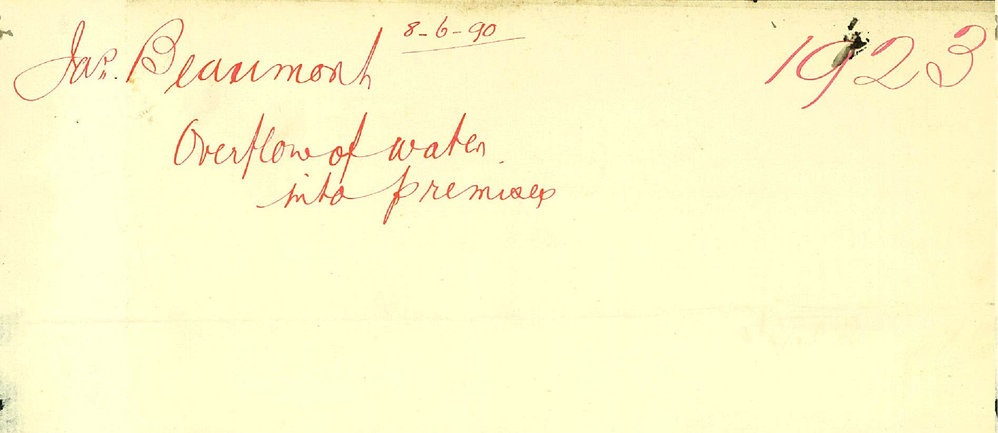 Jas. Beaumont 8-6-90 1923
Overflow of water
into premises